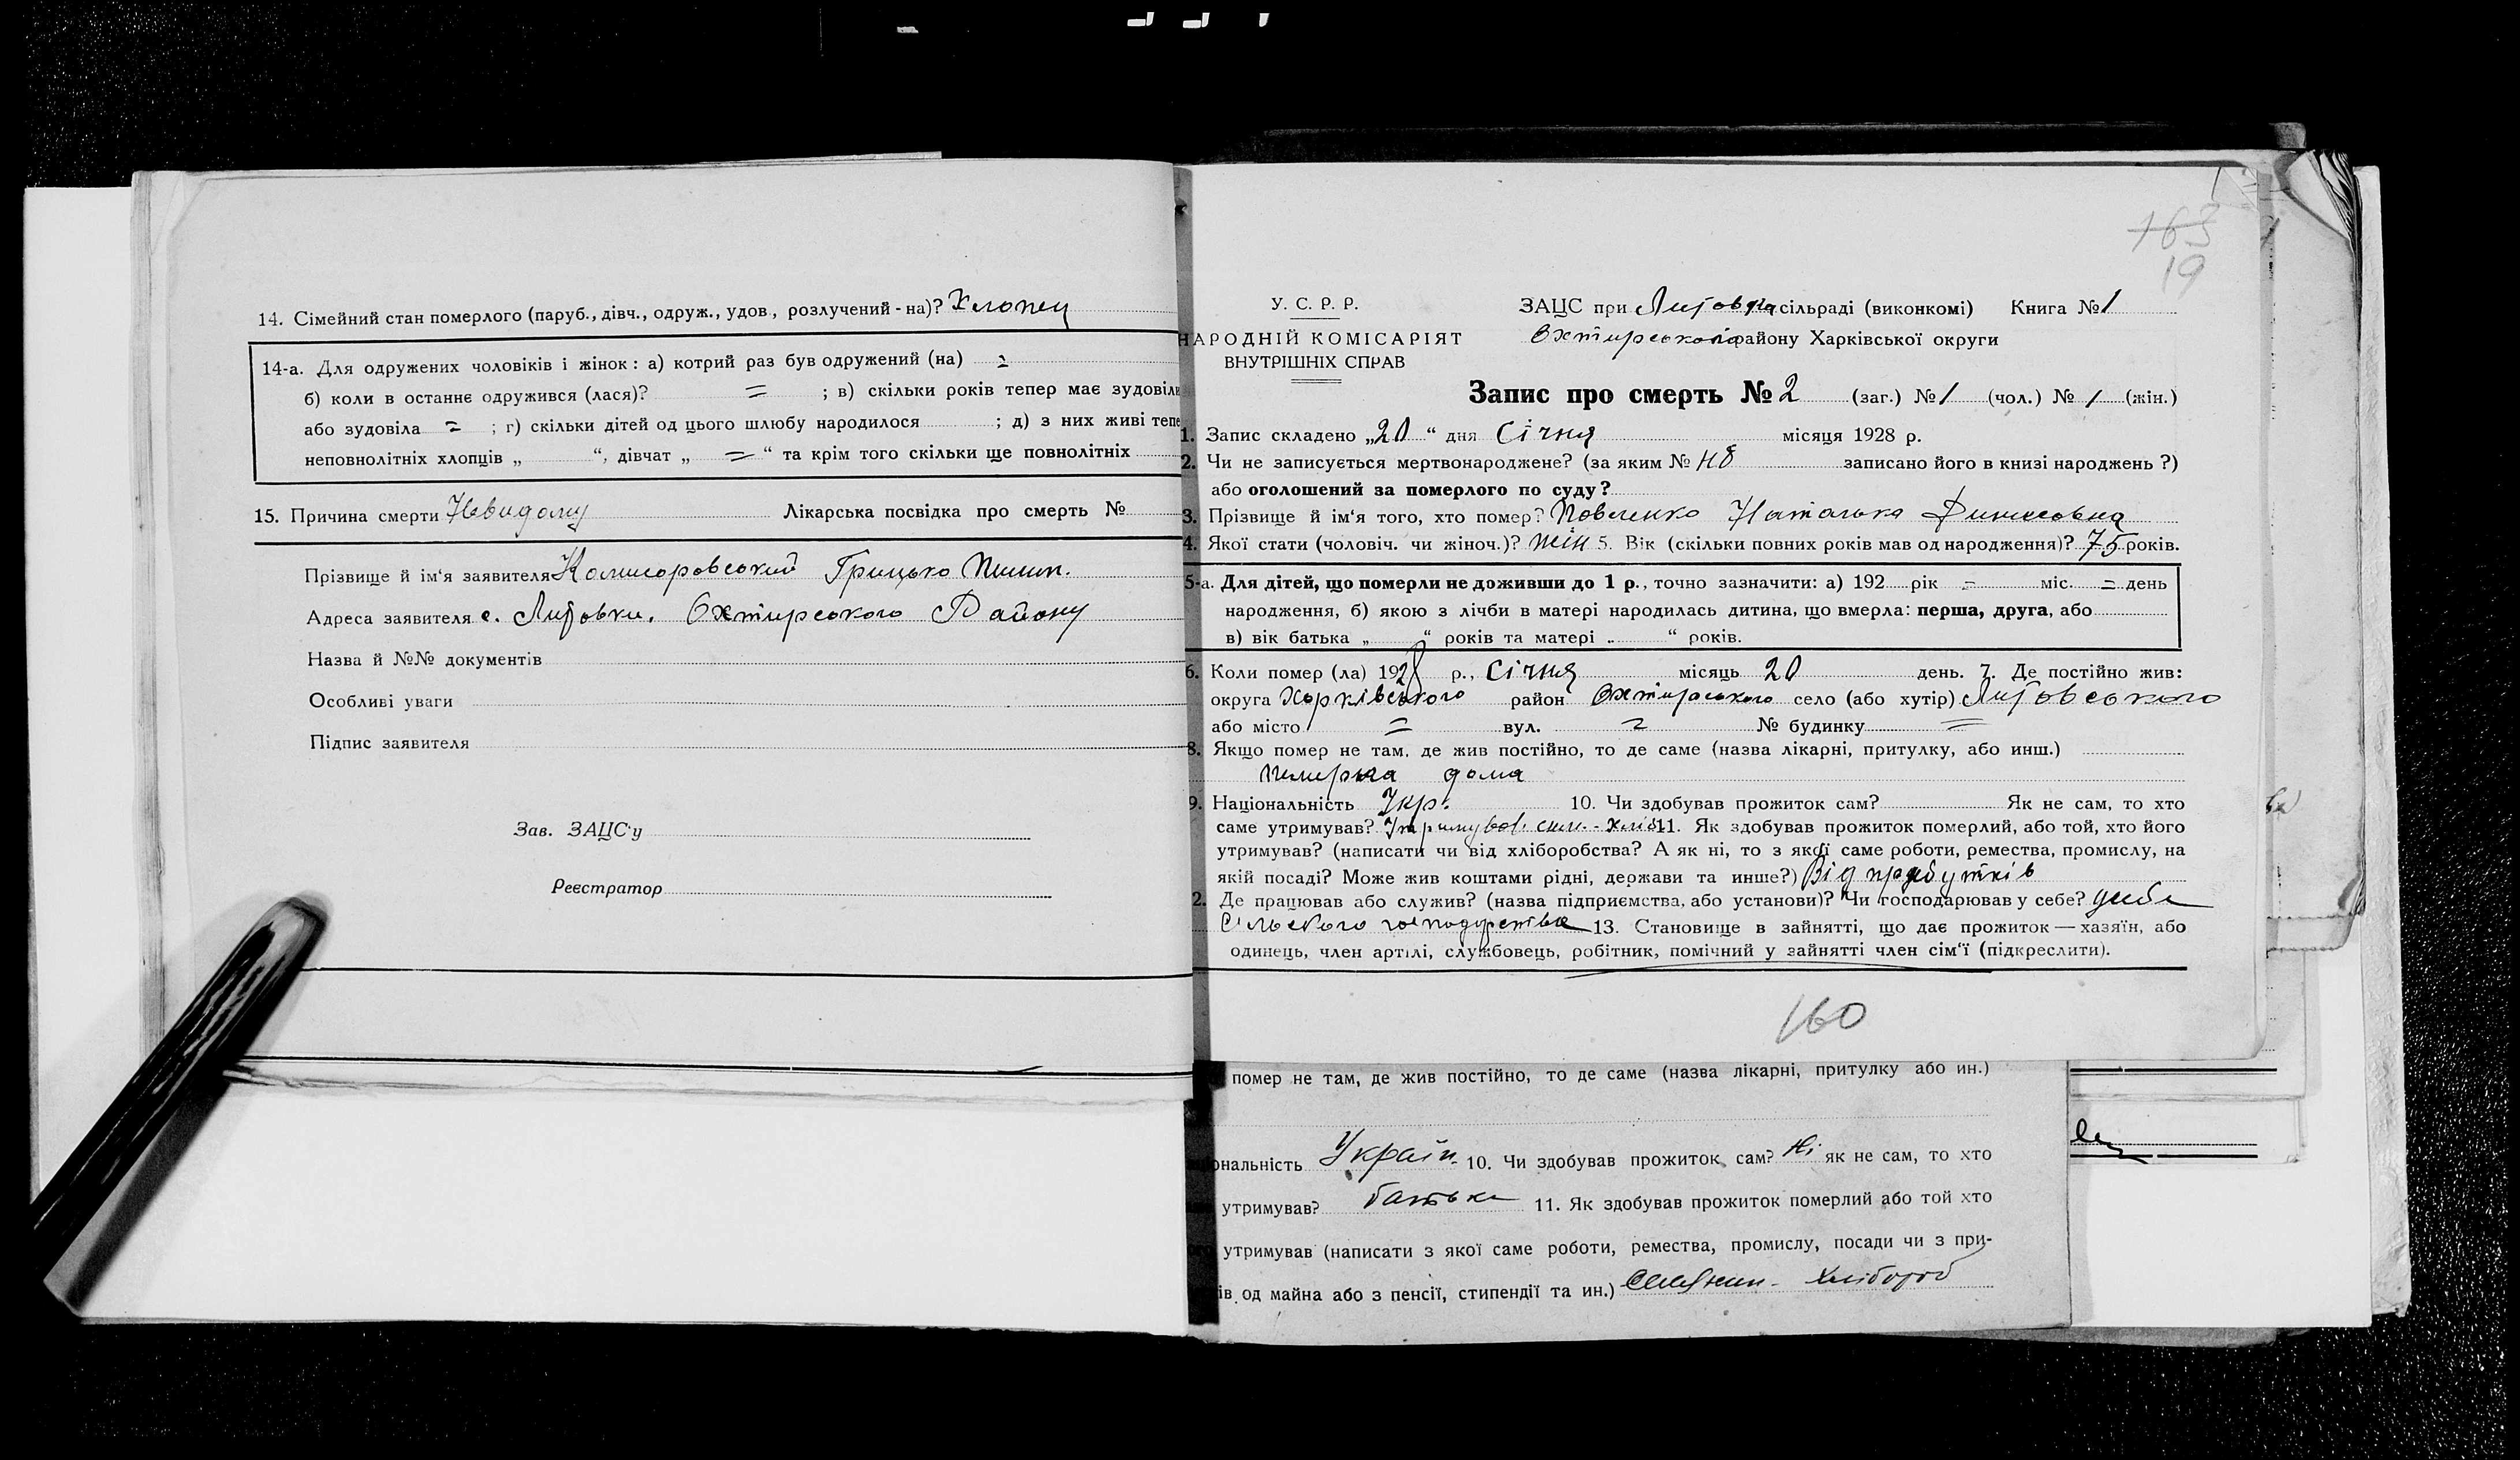 14. Сімейний стан померлого (паруб., дівч., одруж., удов., розлучений - на)? Хлопец
14-а. Для одружених чоловіків і жінок: а) котрий раз був одружений (на) =
б) коли в останнє одружився (лася)? = ; в) скільки років тепер має зудовіли
або зудовіла = ; г) скільки дітей од цього шлюбу народилося ; д) з них живі тепе
неповнолітніх хлопців „ “, дівчат „ = “ та крім того скільки ще повнолітніх
15. Причина смерти Невидому Лікарська посвідка про смерть №
Прізвище й ім‘я заявителя Грицько
Адреса заявителя с. Литовки. Охтирського Району
Назва й №№ документів
Особливі уваги
Підпис заявителя
Зав. ЗАЦС‘у
Реєстратор
163
19
У. С. Р. Р.
НАРОДНІЙ КОМІСАРІЯТ
ВНУТРІШНІХ СПРАВ
ЗАЦС при сільраді (виконкомі) Книга № 1
Охтирського району Харківської округи
Запис про смерть № 2 (заг.) № 1 (чол.) № 1 (жін.)
1. Запис складено „20“ дня Січня місяця 1928 р.
2. Чи не записується мертвонароджене? (за яким № записано його в книзі народжень ?)
або оголошений за померлого по суду?
3. Прізвище й ім‘я того, хто помер? Наталька Денисовна
4. Якої стати (чоловіч. чи жіноч.)? жін 5. Вік (скільки повних років мав од народження)? 75 років.
5-а. Для дітей, що померли не доживши до 1 р., точно зазначити: а) 192 рік = міс. = день
народження, б) якою з лічби в матері народилась дитина, що вмерла: перша, друга, або
в) вік батька „ “ років та матері „ “ років.
6. Коли помер (ла) 1928 р., Січня місяць 20 день. 7. Де постійно жив:
округа Харківського район Охтирського село (або хутір) Литовського
або місто = вул. = № будинку =
8. Якщо помер не там, де жив постійно, то де саме (назва лікарні, притулку, або инш.)
дома
9. Національність Укр. 10. Чи здобував прожиток сам? Як не сам, то хто
саме утримував? 11. Як здобував прожиток померлий, або той, хто його
утримував? (написати чи від хліборобства? А як ні, то з якої саме роботи, ремества, промислу, на
якій посаді? Може жив коштами рідні, держави та инше?) Від прибутків
2. Де працював або служив? (назва підприємства, або установи)? Чи господарював у себе?
Сільского господарства 13. Становище в зайнятті, що дає прожиток — хазяїн, або
одинець, член артілі, службовець, робітник, помічний у зайнятті член сім‘ї (підкреслити).
160
помер не там, де жив постійно, то де саме (назва лікарні, притулку або ин.)
ональність Україн. 10. Чи здобував прожиток сам? Ні як не сам, то хто
утримував? батько 11. Як здобував прожиток померлий або той хто
утримував (написати з якої саме роботи, ремества, промислу, посади чи з при-
ів од майна або з пенсії, стипендії та ин.) Хлібороб